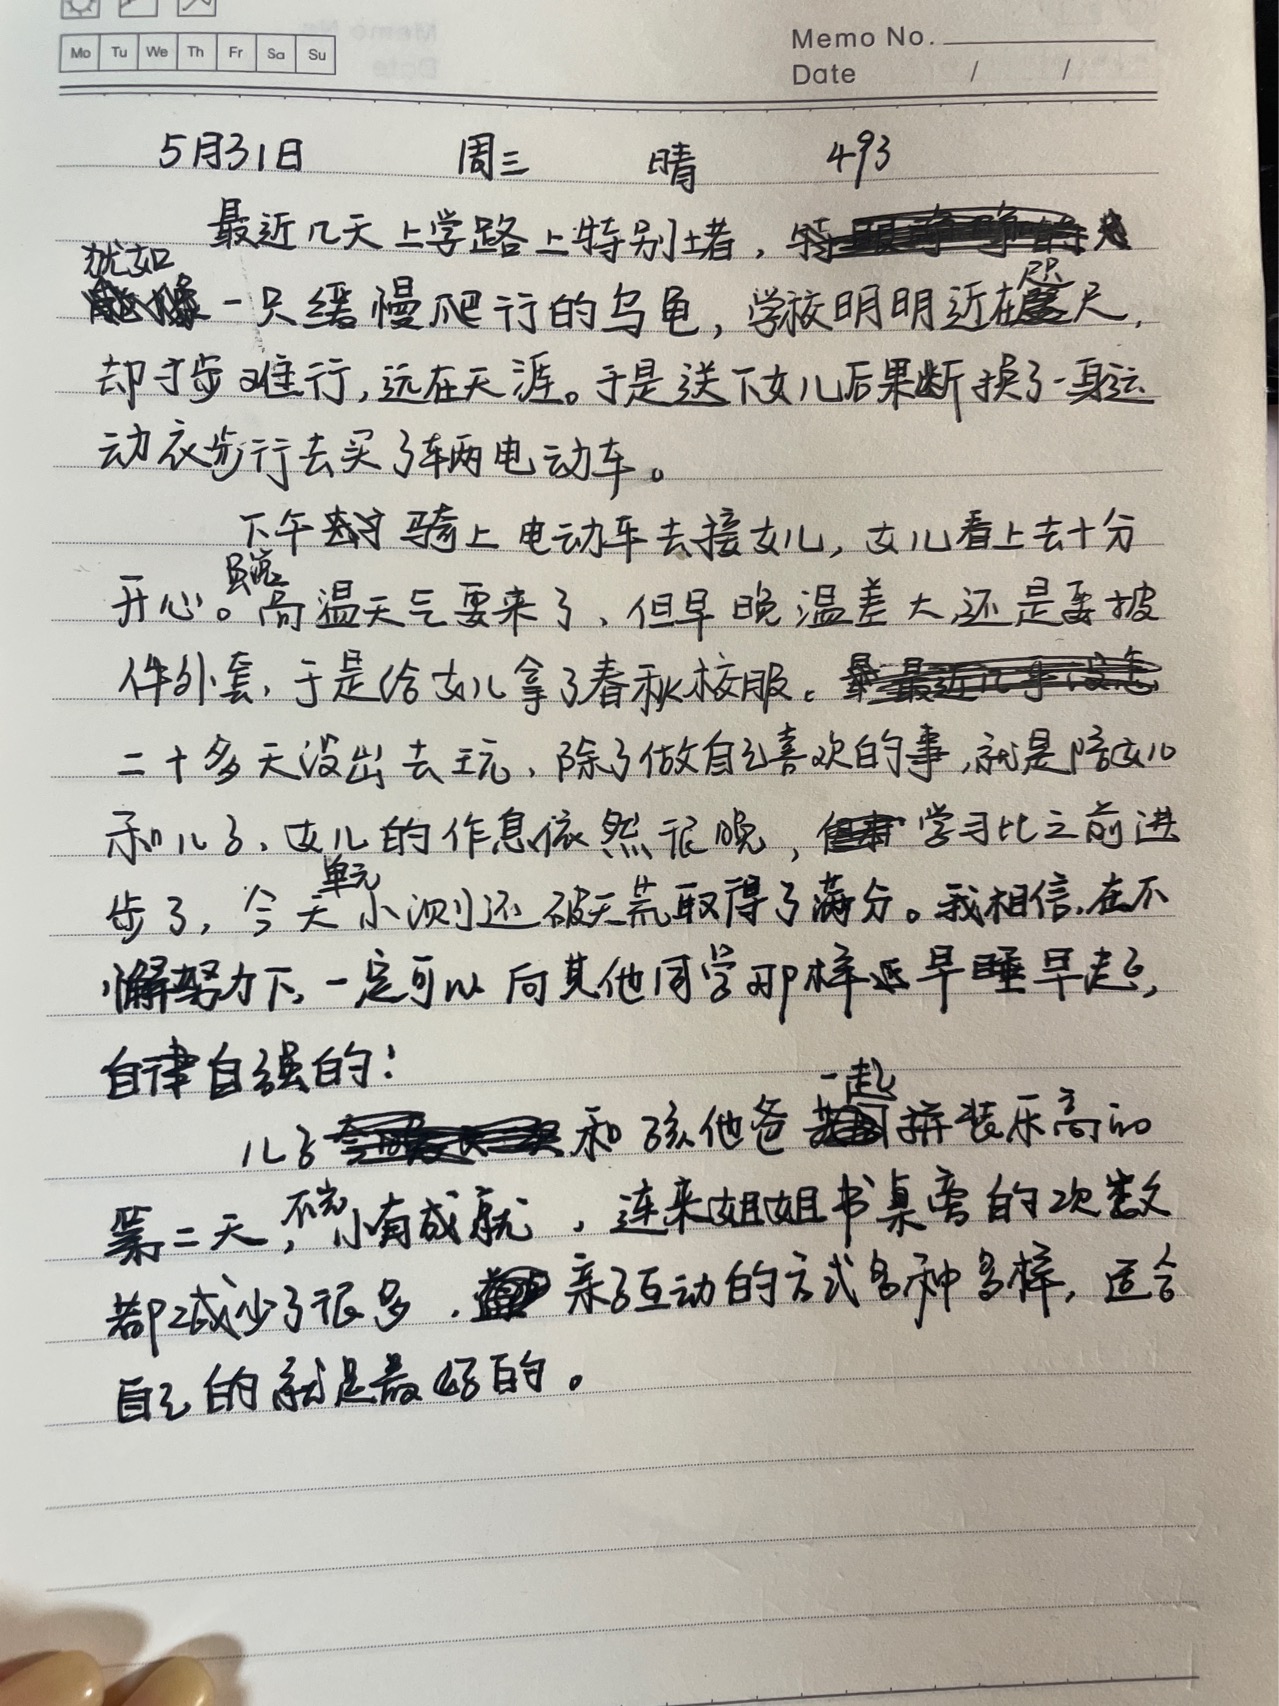 Mo Tu We Th Fr Sa Su
Memo No.
Date / /
5月31日 周三 晴 493
最近几天上学路上特别堵，
犹如一只缓慢爬行的乌龟，学校明明近在咫尺，
却寸步难行，远在天涯。于是送下女儿后果断换了一身运
动衣步行去买了车两电动车。
下午 骑上电动车去接女儿，女儿看上去十分
开心。虽说高温天气要来了，但早晚温差大还是要披
件外套，于是给女儿拿了春秋校服。
二十多天没出去玩，除了做自己喜欢的事，就是陪女儿
和儿子，女儿的作息依然很晚，学习比之前进
步了，今天单元小测还破天荒取得了满分。我相信，在不
懈努力下，一定可以向其他同学那样 早睡早起，
自律自强的！
儿子和孩他爸一起拼装乐高的
第二天，不光小有成就，连来姐姐书桌旁的次数
都减少了很多，亲子互动的方式多种多样，适合
自己的就是最好的。